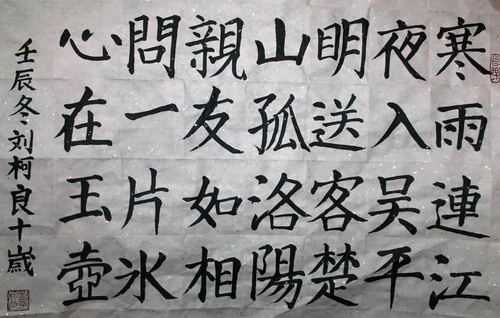 寒雨連江
夜入吴平
明送客楚
山孤洛陽
親友如相
問一片氷
心在玉壺
壬辰冬刘柯良十歲